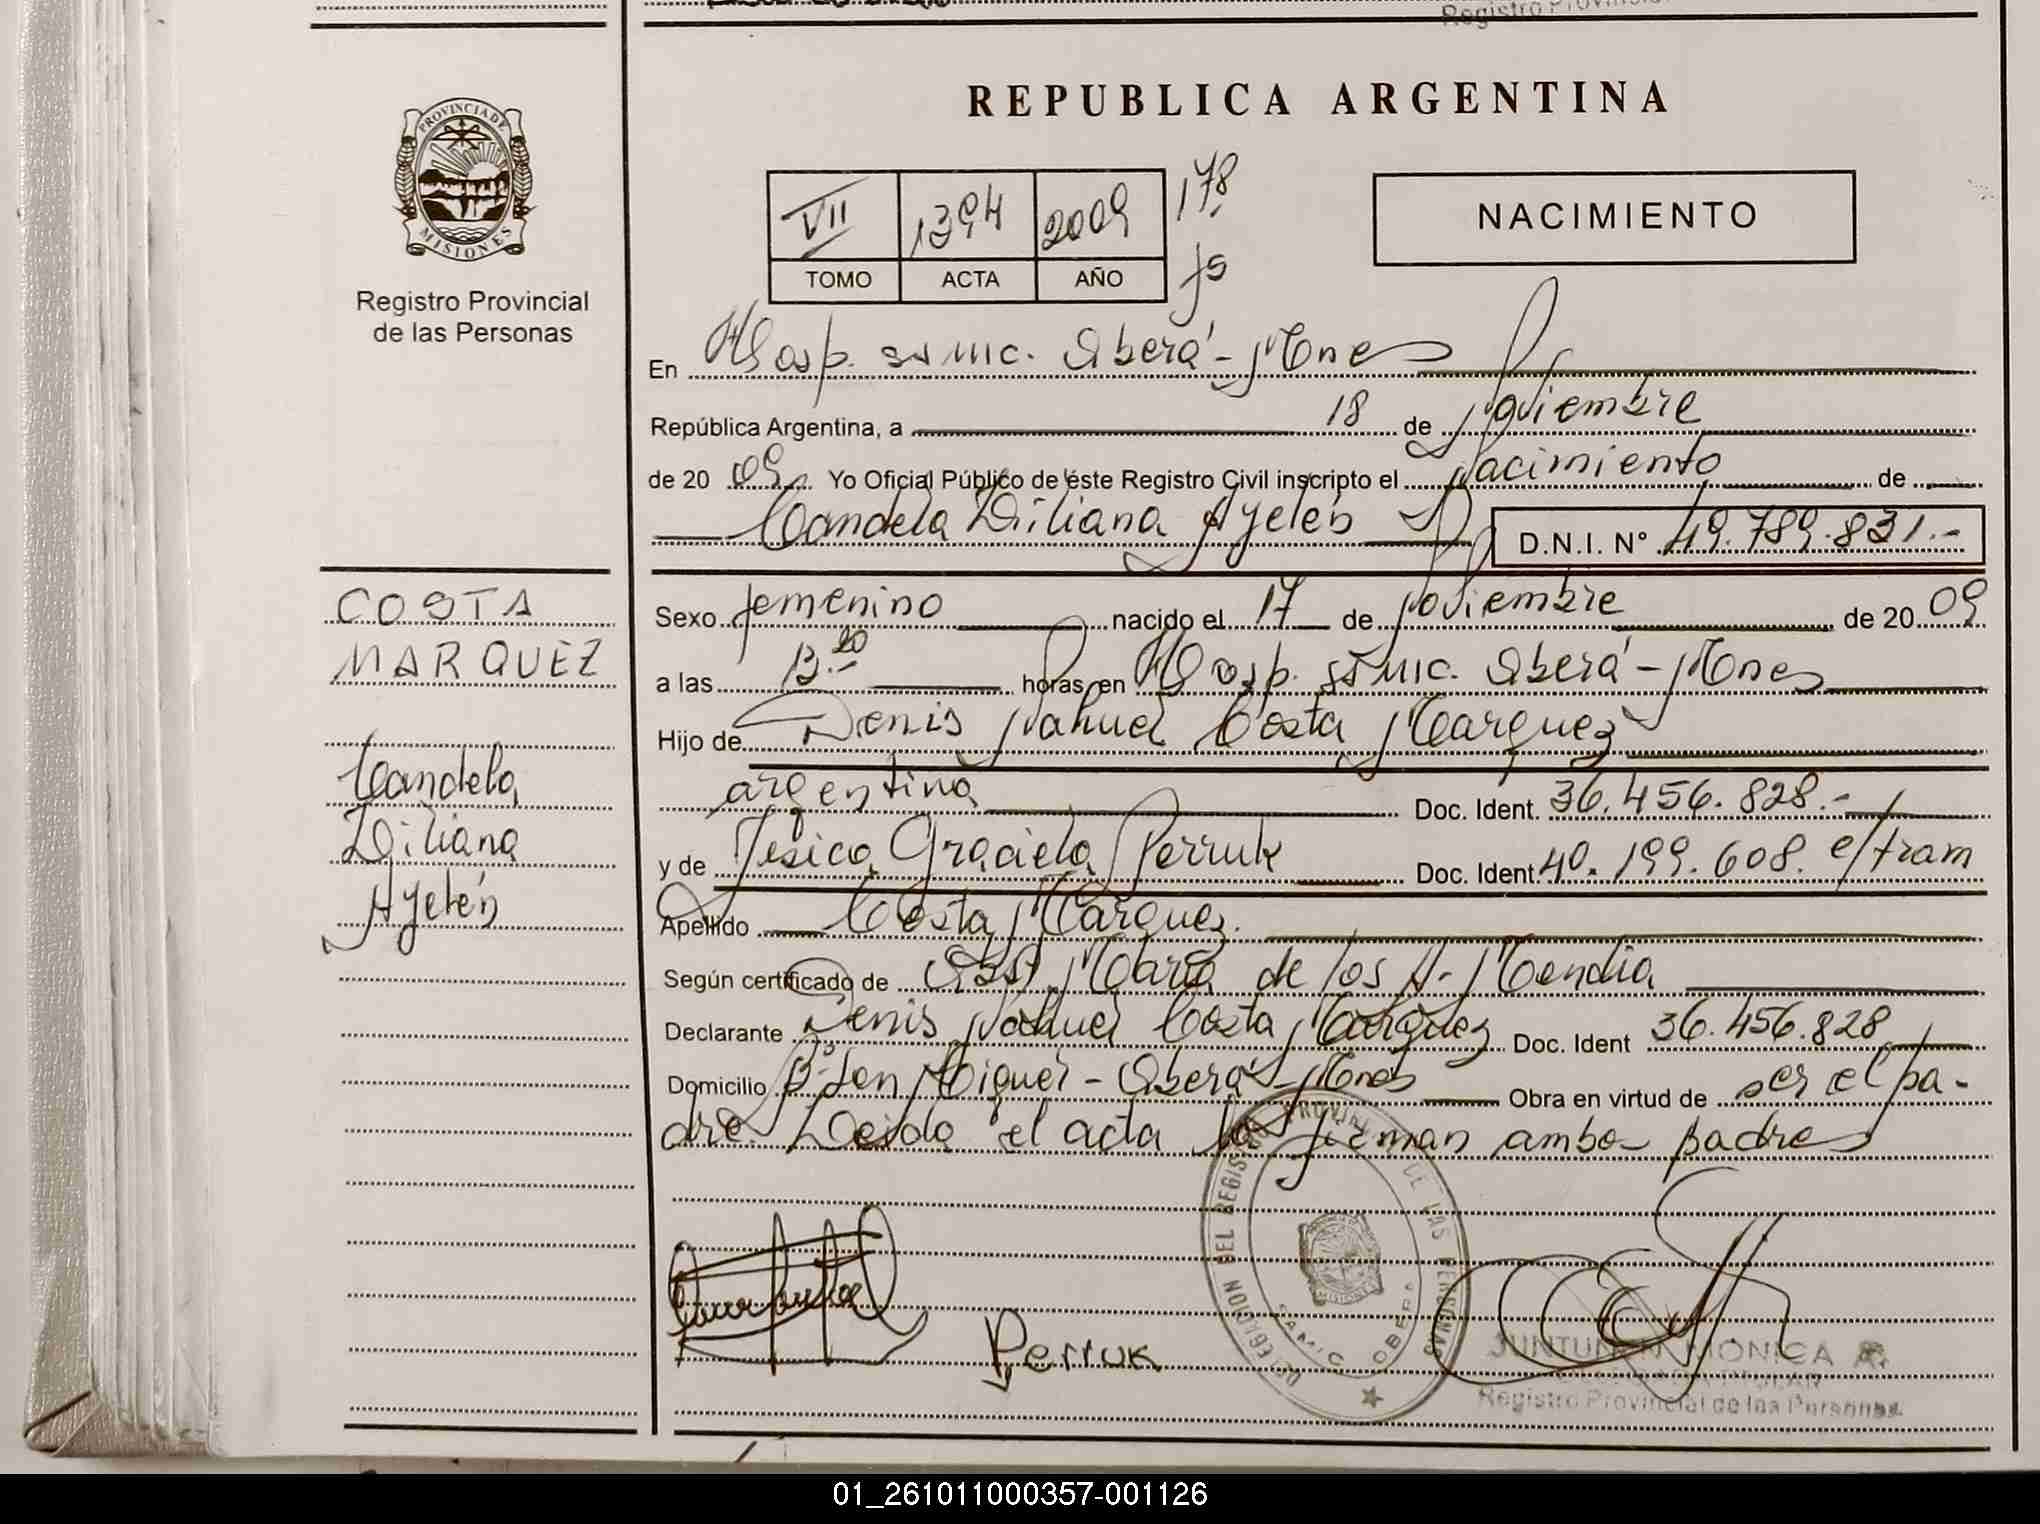 REPUBLICA ARGENTINA
PROVINCIA DE
MISIONES
Registro Provincial
de las Personas
VII 1394 2009 178
TOMO ACTA AÑO fs
NACIMIENTO
En Hosp. SAMIC. Oberá - Mnes
República Argentina, a 18 de Noviembre
de 2009 Yo Oficial Público de éste Registro Civil inscripto el Nacimiento de
Candela Liliana Ayelén D.N.I. Nº 49.789.831.-
COSTA
MARQUEZ
Candela
Liliana
Ayelén
Sexo femenino nacido el 17 de Noviembre de 2009
a las 13.20 horas, en Hosp. SAMIC. Oberá - Mnes
Hijo de Denis Nahuel Costa Marquez
argentina Doc. Ident. 36.456.828.-
y de Jesica Graciela Perruk Doc. Ident. 40.199.608. e/tram
Apellido Costa Marquez.
Según certificado de Obst. Maria de los A. Mendia
Declarante Denis Nahuel Costa Marquez Doc. Ident 36.456.828
Domicilio Bº San Miguel - Oberá - Mnes Obra en virtud de ser el pa-
dre. Leida el acta la firman ambos padres
DELEGACION DEL REGISTRO PROVINCIAL DE LAS PERSONAS
SAMIC OBERA
Perruk
MONICA
Registro Provincial de las Personas
01_261011000357-001126